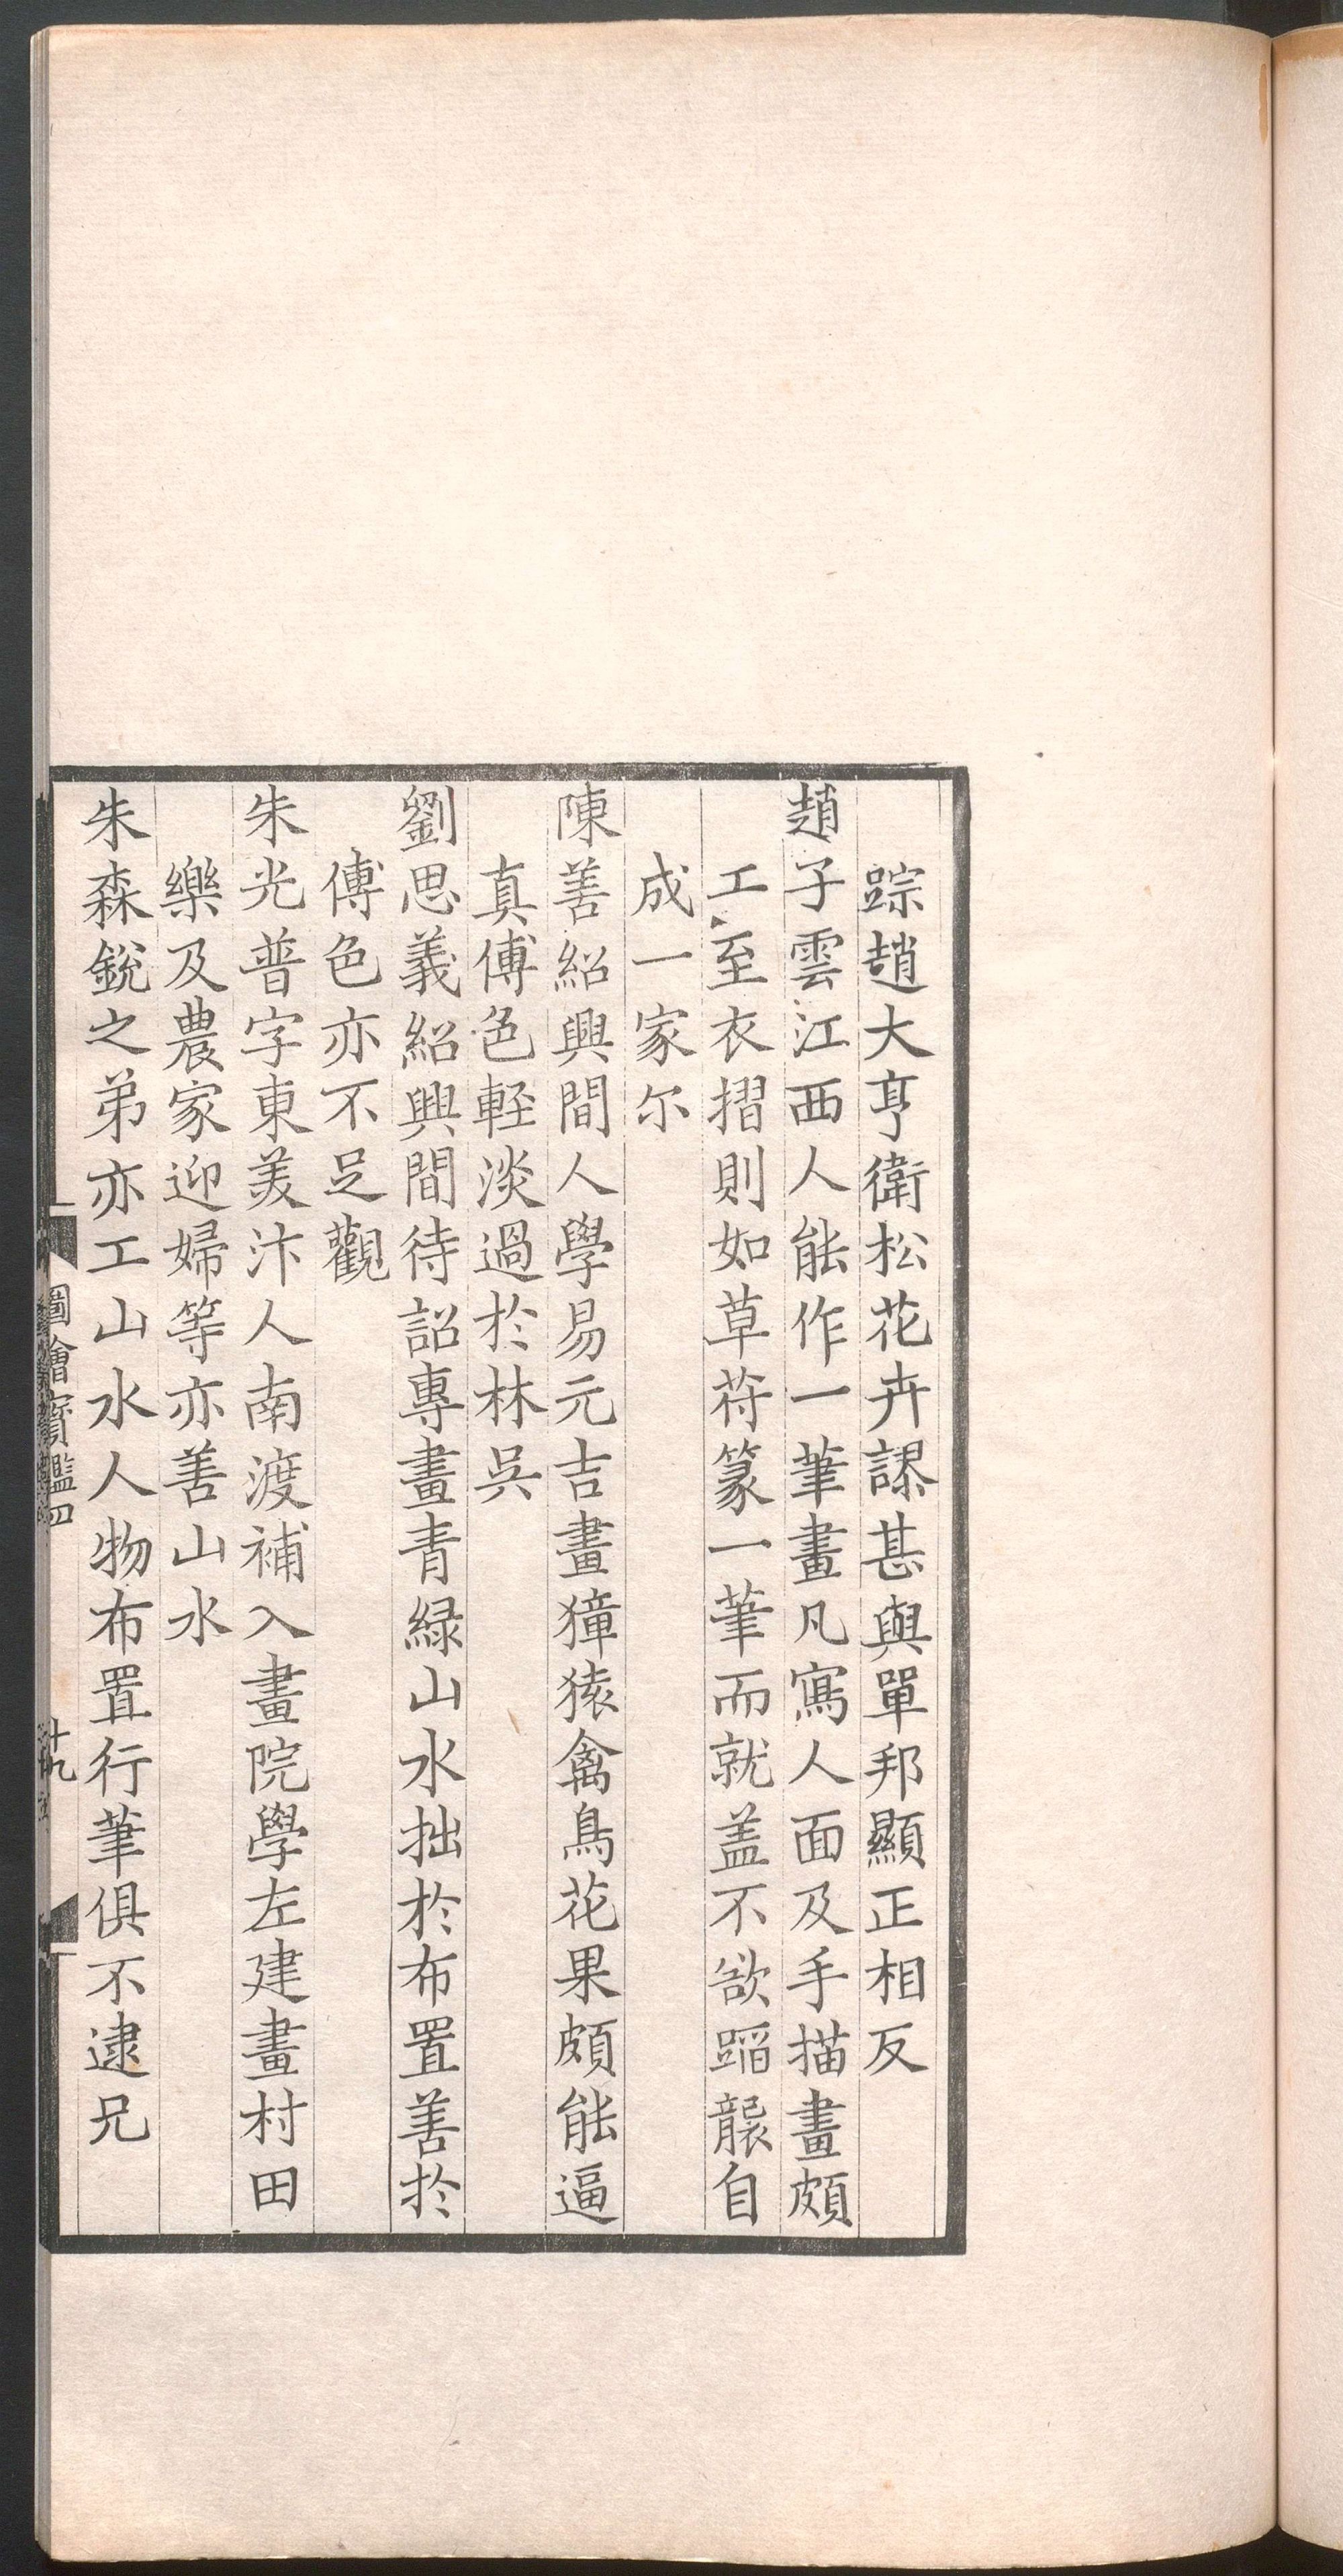 踪趙大亨衛松花卉謬甚與單邦顯正相反
趙子雲江西人能作一筆畫凡寫人面及手描畫頗
工至衣摺則如草苻篆一筆而就盖不欲蹈襲自
成一家尔
陳善紹興間人學易元吉畫獐猿禽鳥花果頗能逼
真傅色輊淡過於林吳
劉思義紹興間待詔專畫青綠山水拙於布置善於
傅色亦不足觀
朱光普字東美汴人南渡補入畫院學左建畫村田
樂及農家迎婦等亦善山水
朱森銳之弟亦工山水人物布置行筆俱不逮兄
圖繪寳鑑四
十九